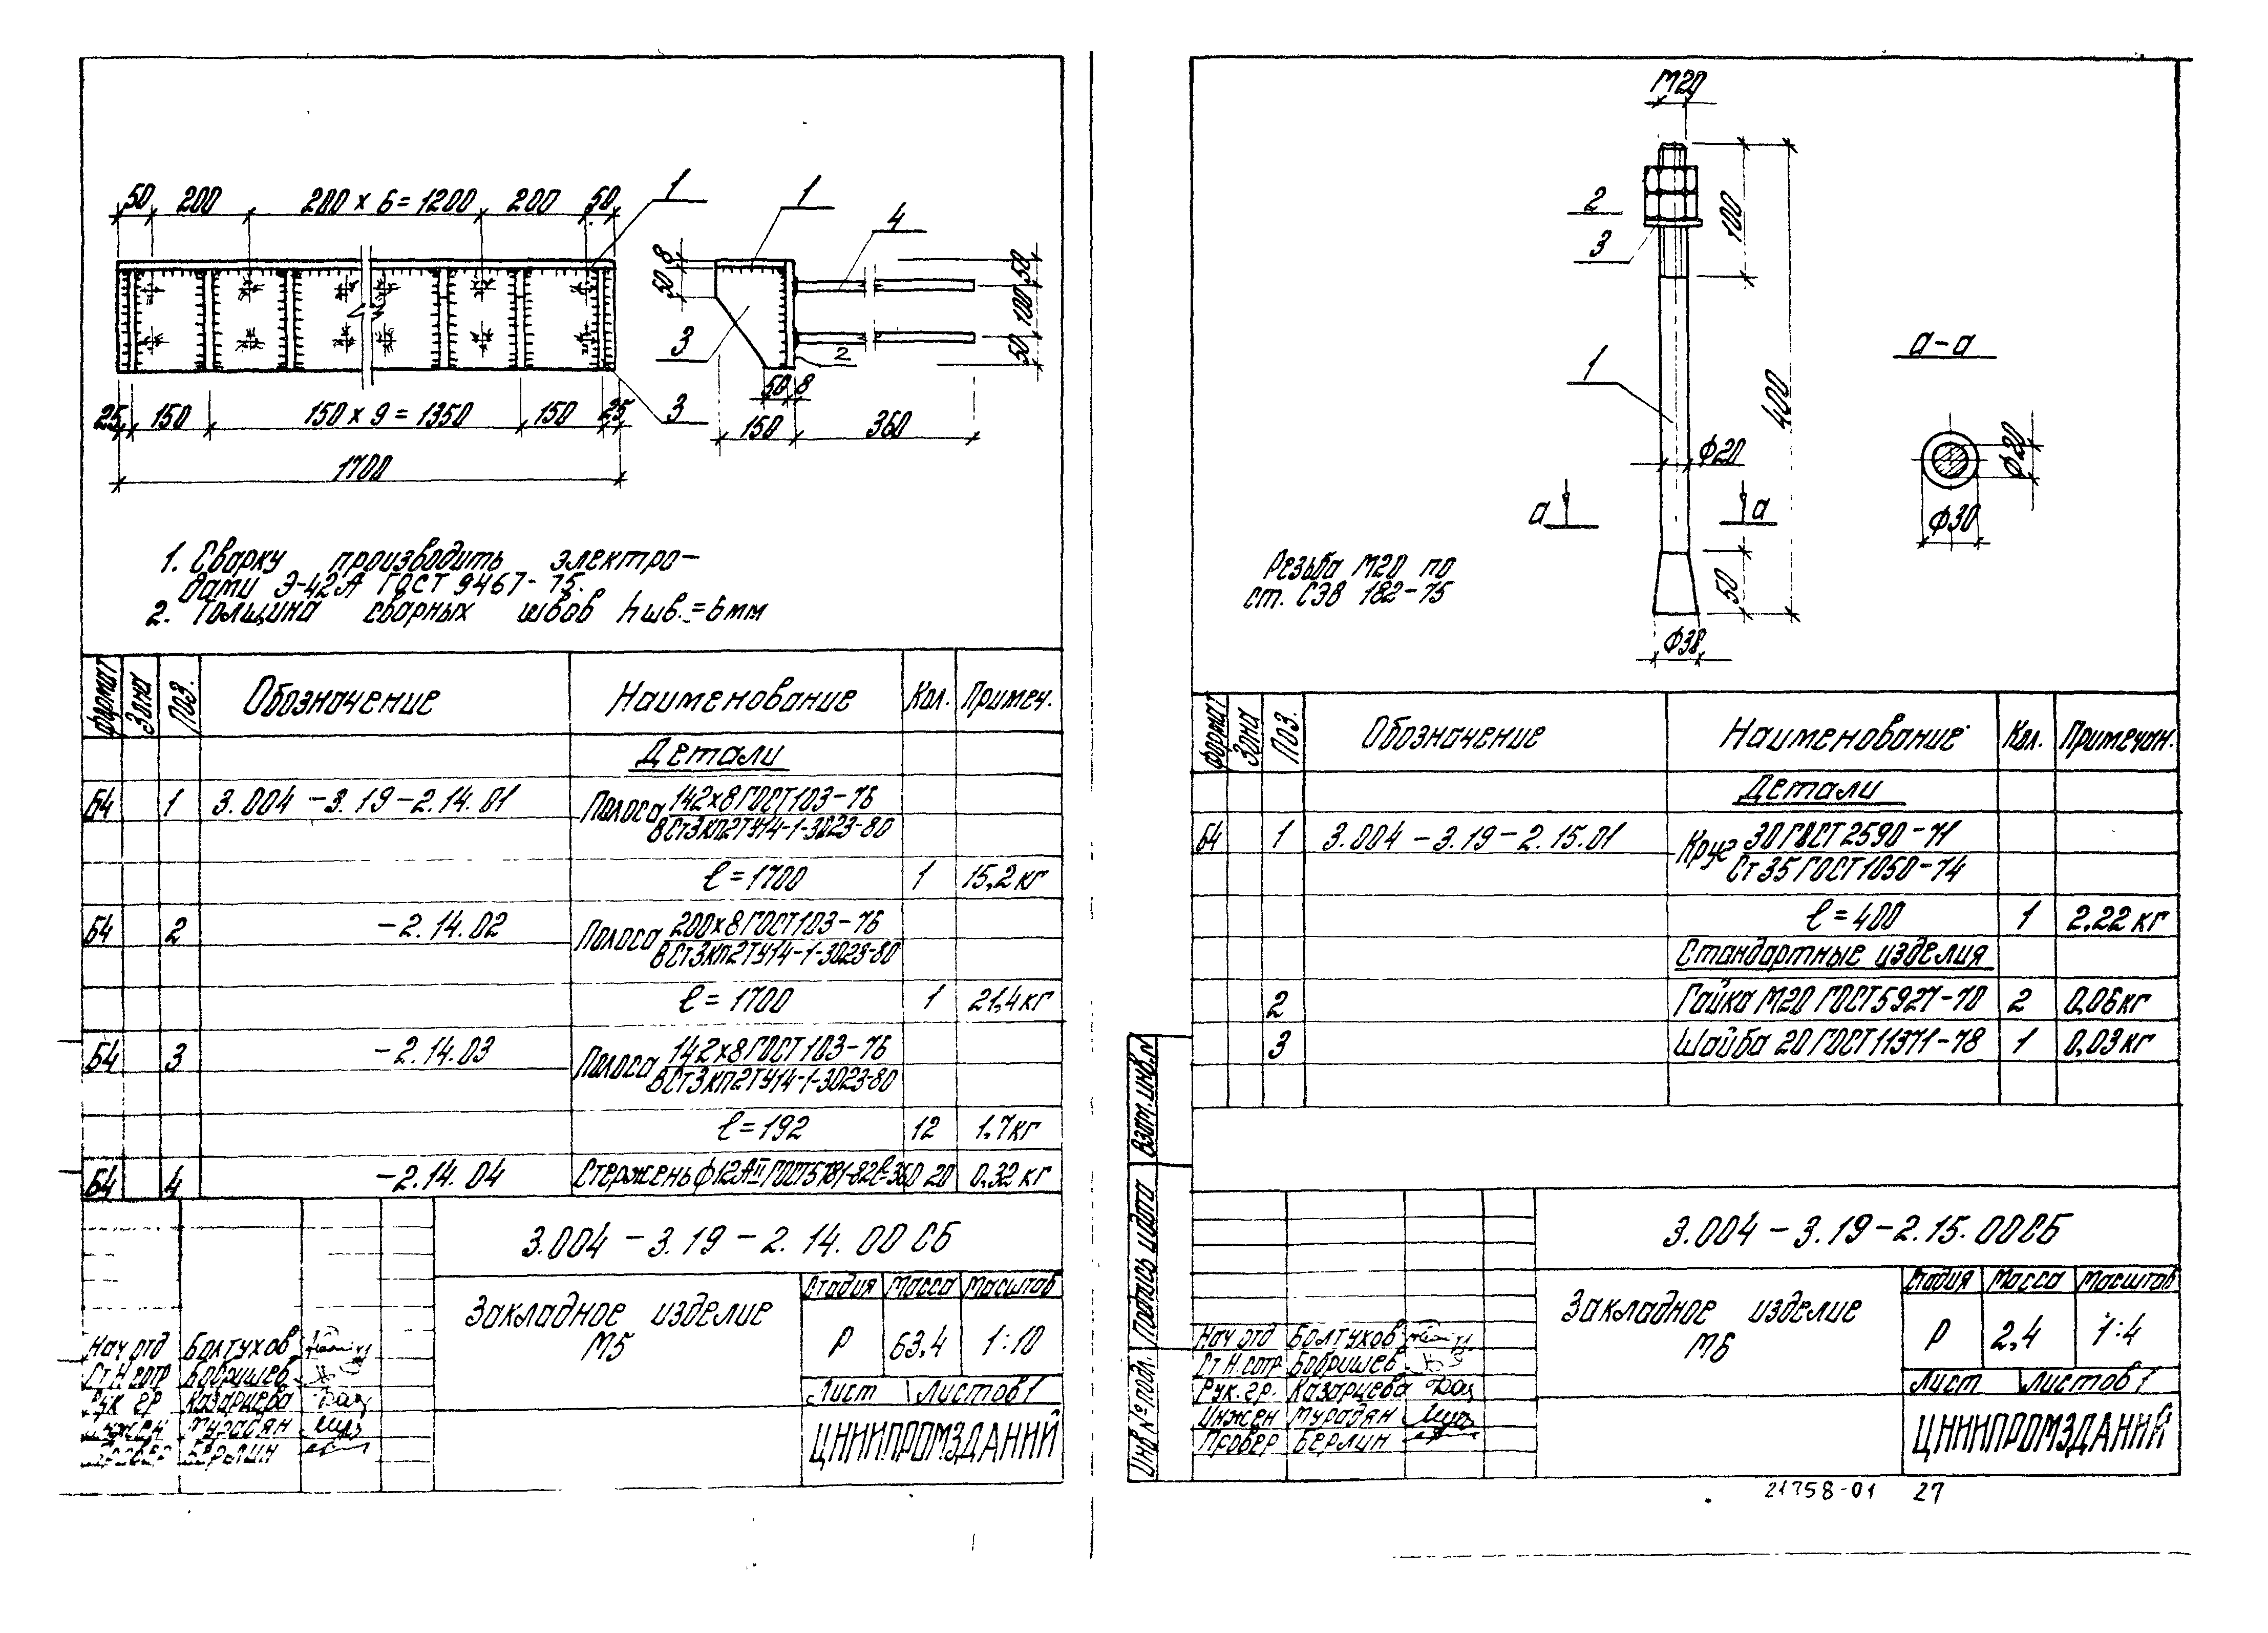 50 200 200 × 6 = 1200 200 50 1
8 50 1 4
3 2
50 8
150 360
50 100 50
25 150 150 × 9 = 1350 150 25 3
1700
1. Сварку производить электро-
дами Э-42А ГОСТ 9467-75.
2. Толщина сварных швов hшв.=6мм
Формат Зона Поз. Обозначение Наименование Кол. Примеч.
Детали
Б4 1 3.004-3.19-2.14.01 Полоса 142×8 ГОСТ 103-76
ВСт3кп2ТУ14-1-3023-80
ℓ=1700 1 15,2 кг
Б4 2 -2.14.02 Полоса 200×8 ГОСТ 103-76
ВСт3кп2ТУ14-1-3023-80
ℓ=1700 1 21,4 кг
Б4 3 -2.14.03 Полоса 142×8 ГОСТ 103-76
ВСт3кп2ТУ14-1-3023-80
ℓ=192 12 1,7 кг
Б4 4 -2.14.04 Стержень ф12АII ГОСТ5781-82 ℓ=360 20 0,32 кг
3.004-3.19-2.14.00СБ
Закладное изделие
М5
Стадия Масса Масштаб
Р 63,4 1:10
Лист Листов 1
ЦНИИПРОМЗДАНИЙ
Нач отд Болтухов
Ст Н. сотр Бобришев
Рук гр Казарцева
Инжен Мурадян
Провер Берлин
М20
2
3
100
400
1
ф20
а а
50
ф38
а-а
ф20
ф30
Резьба М20 по
ст. СЭВ 182-75
Формат Зона Поз. Обозначение Наименование Кол. Примечан.
Детали
Б4 1 3.004-3.19-2.15.01 Круг 30 ГОСТ 2590-71
Ст 35 ГОСТ 1050-74
ℓ=400 1 2,22 кг
Стандартные изделия
2 Гайка М20 ГОСТ 5927-70 2 0,06 кг
3 Шайба 20 ГОСТ 11371-78 1 0,03 кг
Взам. инв. №
Подпись и дата
Инв № подл.
3.004-3.19-2.15.00СБ
Закладное изделие
М6
Стадия Масса Масштаб
Р 2,4 1:4
Лист Листов 1
ЦНИИПРОМЗДАНИЙ
Нач отд Болтухов
Ст Н. сотр Бобришев
Рук. гр. Казарцева
Инжен Мурадян
Провер Берлин
21758-01 27